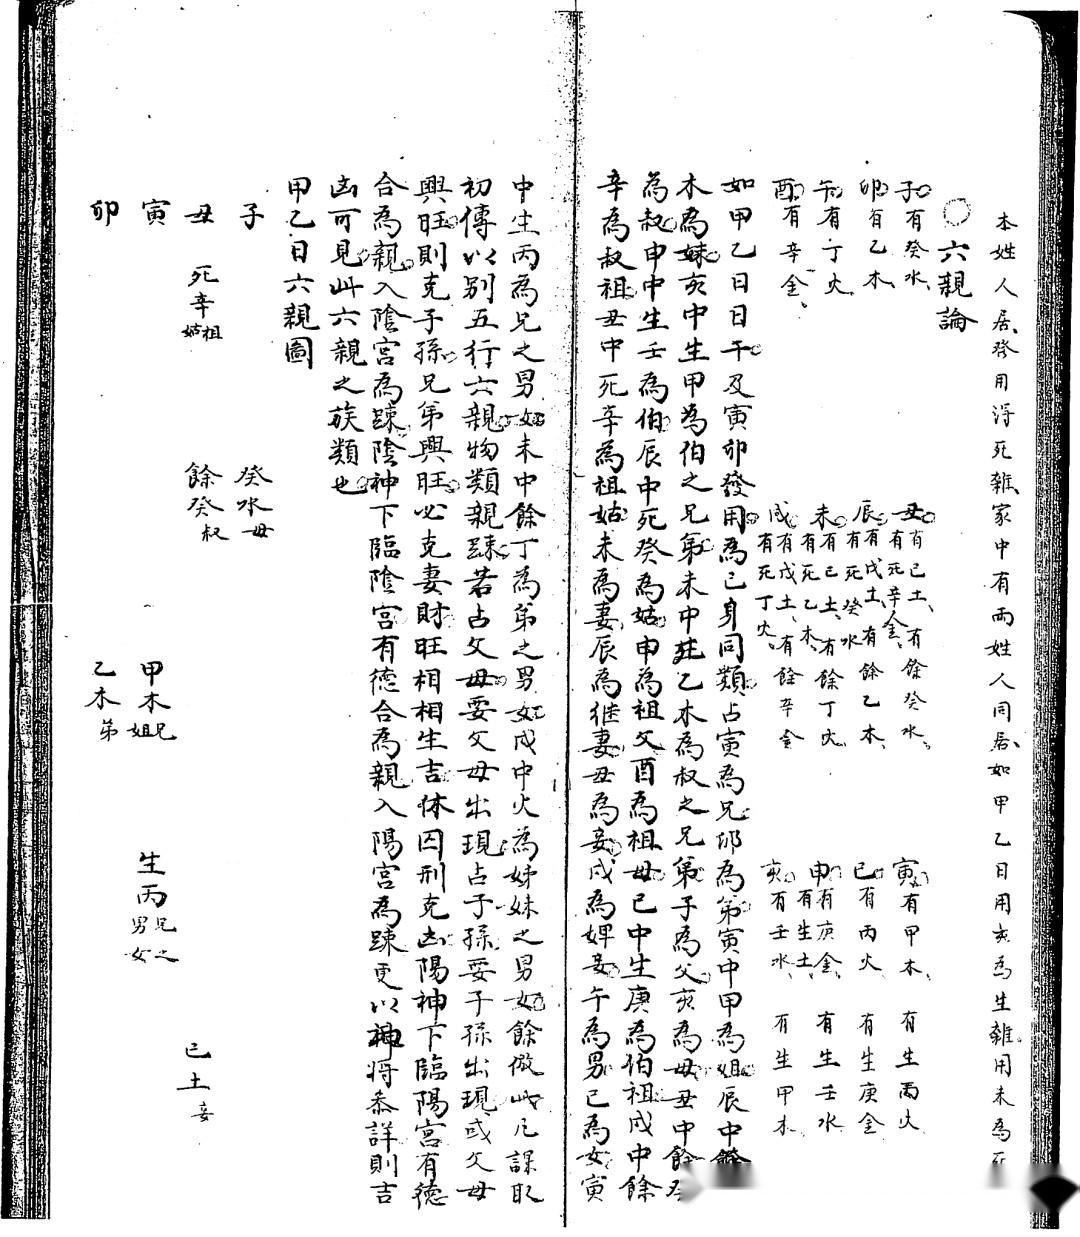 本姓人居發用淂死雜家中有両姓人同居如甲乙日用亥為生雜用未為死
○六親論
子有癸水　丑有己土有餘癸水有死辛金　寅有甲木有生丙火
卯有乙木　辰有戊土有餘乙木有死癸水　巳有丙火有生庚金
午有丁火　未有己土有餘丁火有死乙木　申有庚金有生壬水有生土
酉有辛金　戌有戊土有餘辛金有死丁火　亥有壬水有生甲木
如甲乙日日干及寅卯發用為己身同類占寅為兄卯為弟寅中甲為姐辰中餘
木為妹亥中生甲為伯之兄弟未中死乙木為叔之兄弟子為父亥為母丑中餘癸
為叔申中生壬為伯辰中死癸為姑申為祖父酉為祖母巳中生庚為伯祖戌中餘
辛為叔祖丑中死辛為祖姑未為妻辰為继妻丑為妾戌為婢妾午為男巳為女寅
中生丙為兄之男女未中餘丁為弟之男女戌中火為姊妹之男女餘倣此凡課取
初傳以别五行六親物類親踈若占父母要父母出現占子孫要子孫出現或父母
興旺則克子孫兄弟興旺必克妻財旺相相生吉休囚刑克凶陽神下臨陽宮有德
合為親入陰宮為踈陰神下臨陰宮有德合為親入陽宮為踈更以神将叅詳則吉
凶可見此六親之族類也
甲乙日六親圖
子　癸水母
丑　死辛祖姑　餘癸叔　己土妾
寅　甲木兄姐　生丙兄之男女
卯　乙木弟